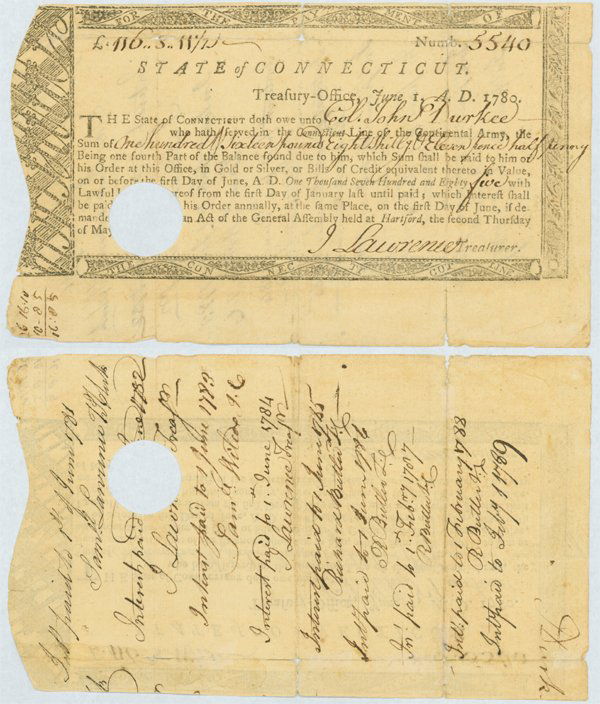 FOR THE PAYMENT OF
£ 116..8..11 1/2
Numb. 5540
STATE of CONNECTICUT.
Treasury-Office, June 1. A. D. 1780.
THE State of CONNECTICUT doth owe unto Col. John Durkee
who hath served in the Connecticut Line of the Continental Army, the
Sum of One hundred Sixteen pounds Eight Shillgs Eleven pence half penny
Being one fourth Part of the Balance found due to him, which Sum shall be paid to him or
his Order at this Office, in Gold or Silver, or Bills of Credit equivalent thereto in Value,
on or before the first Day of June, A. D. One Thousand Seven Hundred and Eighty five with
Lawful thereof from the first Day of January last until paid; which Interest shall
be paid his Order annually, at the same Place, on the first Day of June, if de-
mande an Act of the General Assembly held at Hartford, the second Thursday
of May
J Lawrence Treasurer.
CON NEC TI CUT LINE
Int paid to 1st June 1781
Saml Lawrence
Interest paid June 1782
J Lawr Treasr
Interest paid to 1 June 1783
Interest paid to 1st June 1784
J Lawrence Treasr
Interest paid to 1 June 1785
Richard Butler
Int paid to 1 June 1786
R Butler
Int paid to 1st Feby 1787
R Butler
Int paid to 1 February 1788
R Butler
Int paid to Feby 1789